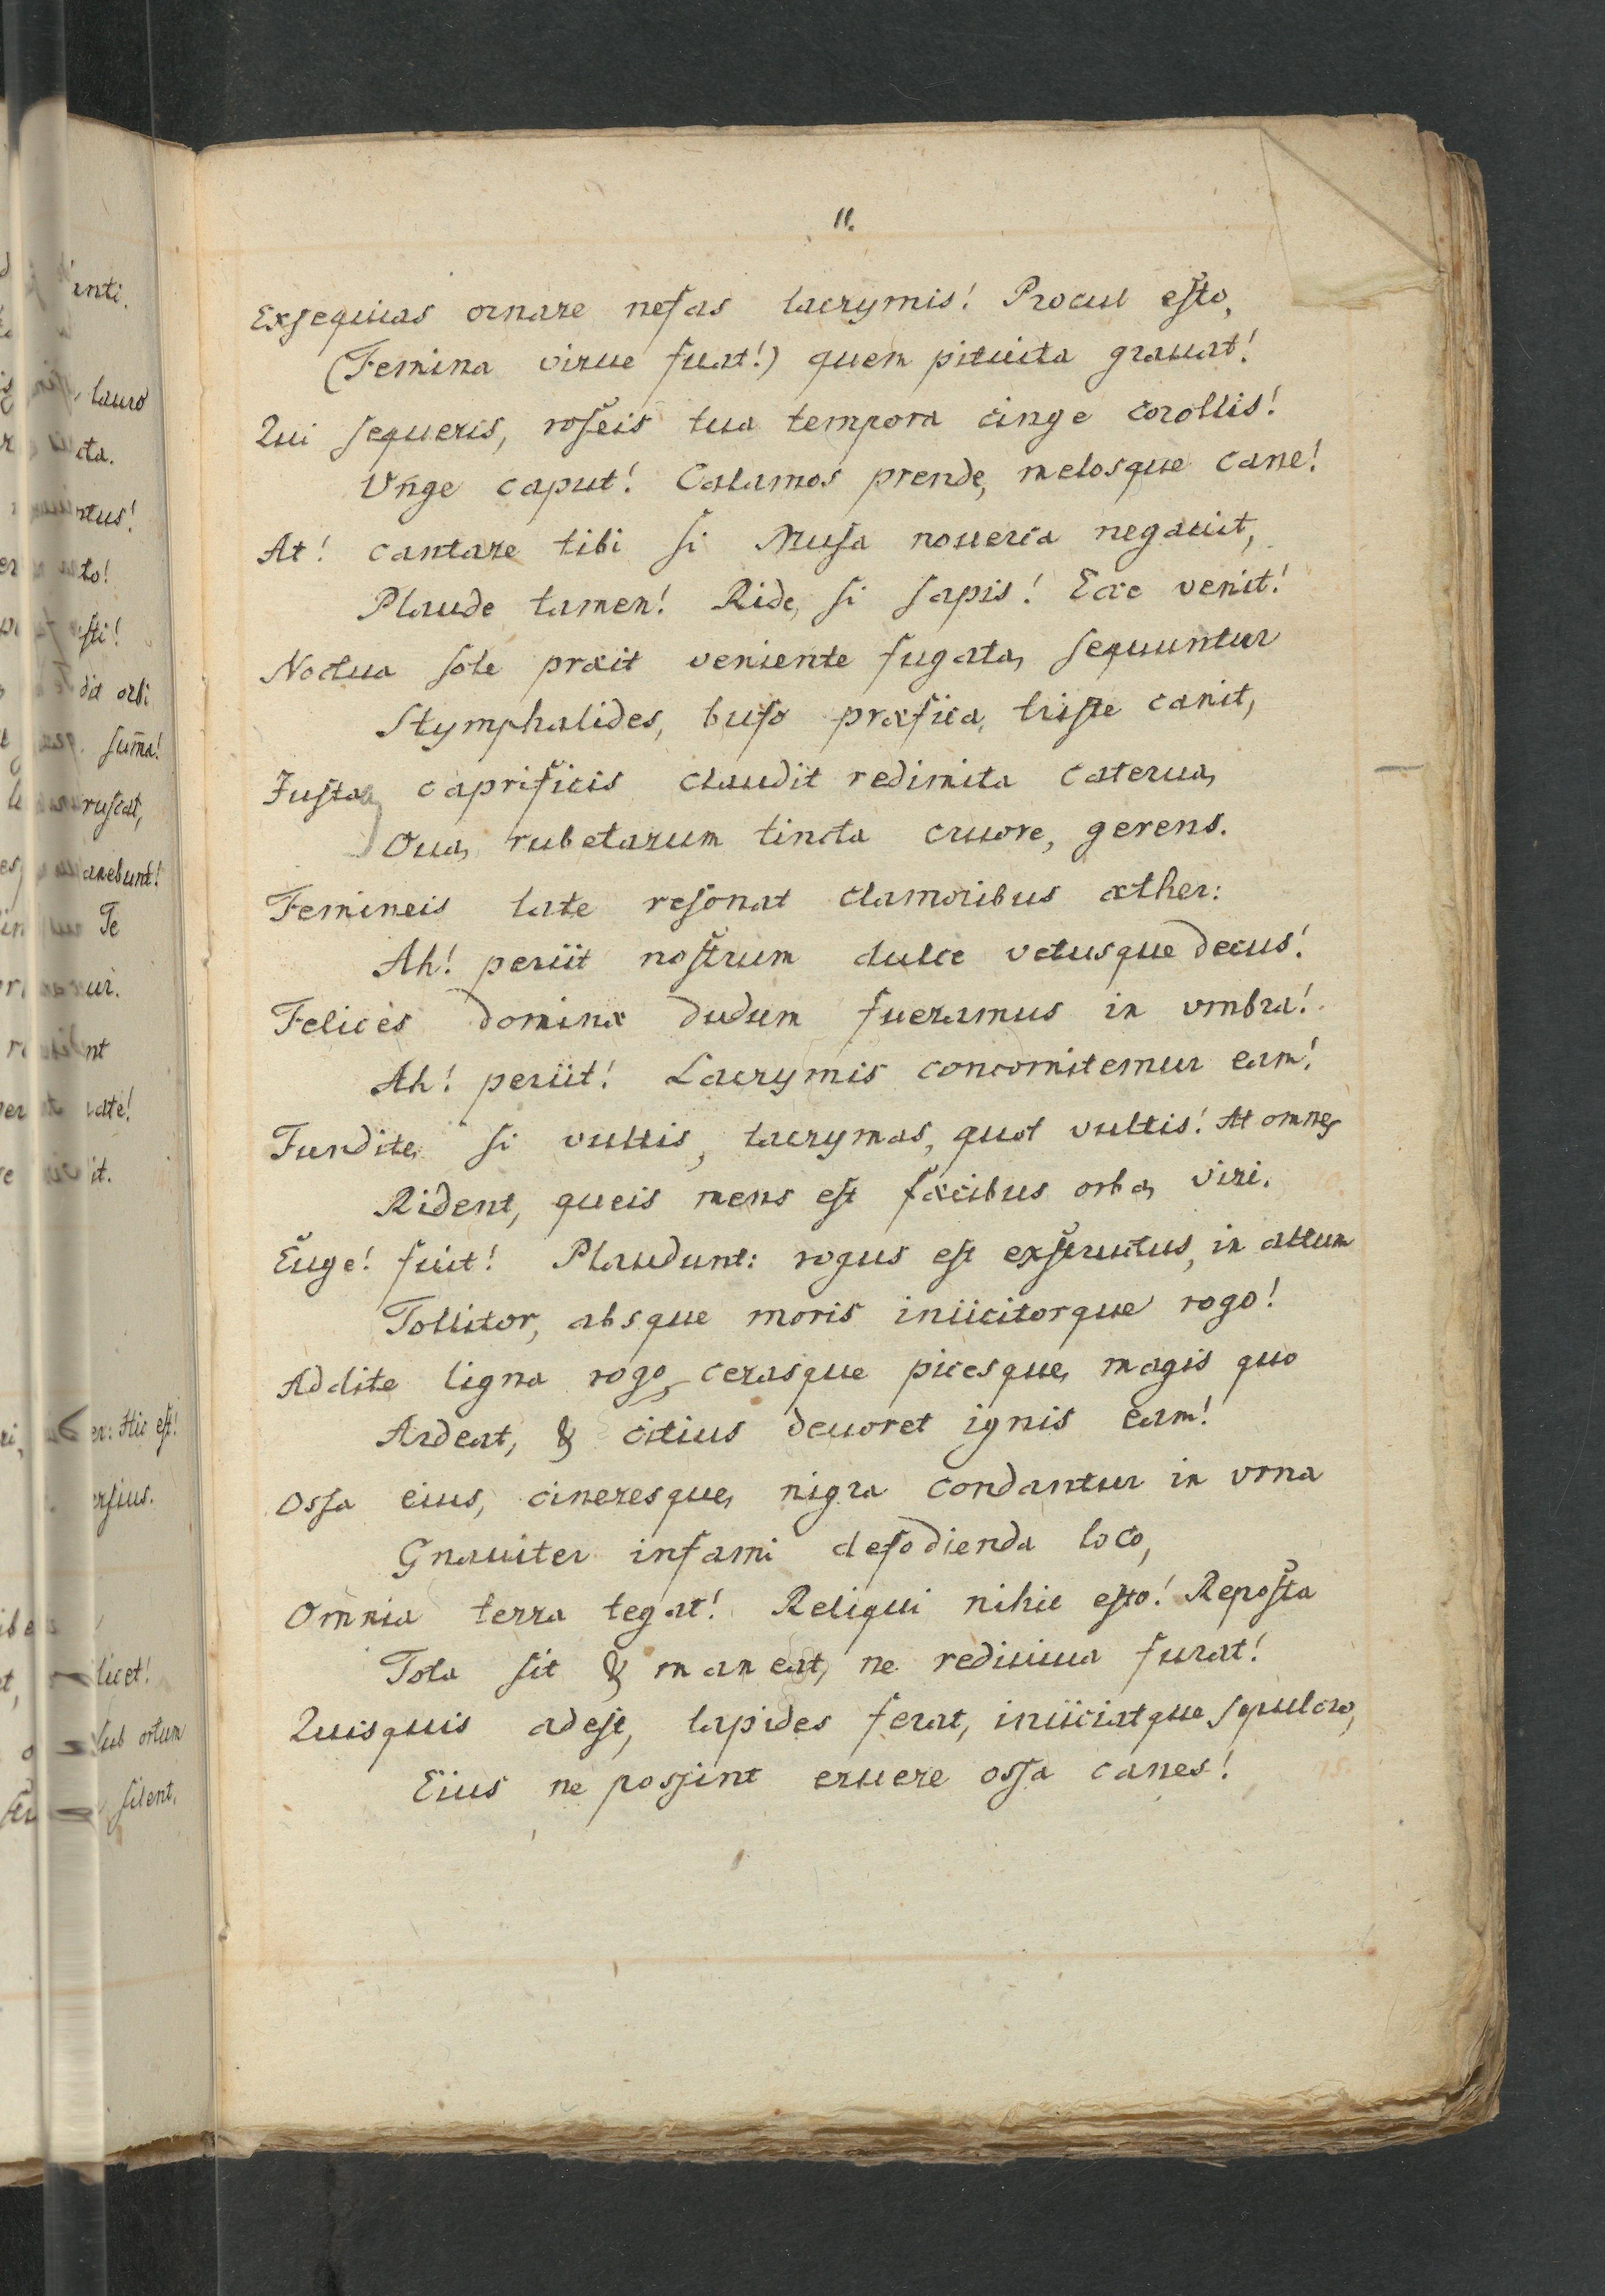 11.
Exsequias ornare nefas lacrymis! Procul esto,
(Femina virue fuat!) quem pituita grauat!
Qui sequeris, roseis tua tempora cinge corollis!
Vnge caput! Calamos prende, melosque cane!
At! cantare tibi si Musa nouerca negauit,
Plaude tamen! Ride, si sapis! Ecce venit!
Noctua sole præit veniente fugata, sequuntur
Stymphalides, bufo præfica, triste canit,
Justa caprificis claudit redimita caterua,
Oua, rubetarum tincta cruore, gerens.
Femineis late resonat clamoribus æther:
Ah! periit nostrum dulce vetusque decus!
Felices dominæ dudum fueramus in vmbra!
Ah! periit! Lacrymis concomitemur eam!
Fundite, si vultis, lacrymas, quot vultis! At omnes
Rident, queis mens est fæcibus orba, viri.
Euge! fuit! Plaudunt: rogus est exstructus, in altum
Tollitor, absque moris iniicitorque rogo!
Addite ligna rogo, cerasque picesque, magis quo
Ardeat, & citius deuoret ignis eam!
Ossa eius, cineresque, nigra condantur in vrna
Gnauiter infami defodienda loco,
Omnia terra tegat! Reliqui nihil esto! Reposta
Tota sit & maneat, ne rediuiua furat!
Quisquis adest, lapides ferat, iniiciatque sepulcro,
Eius ne possint eruere ossa canes!